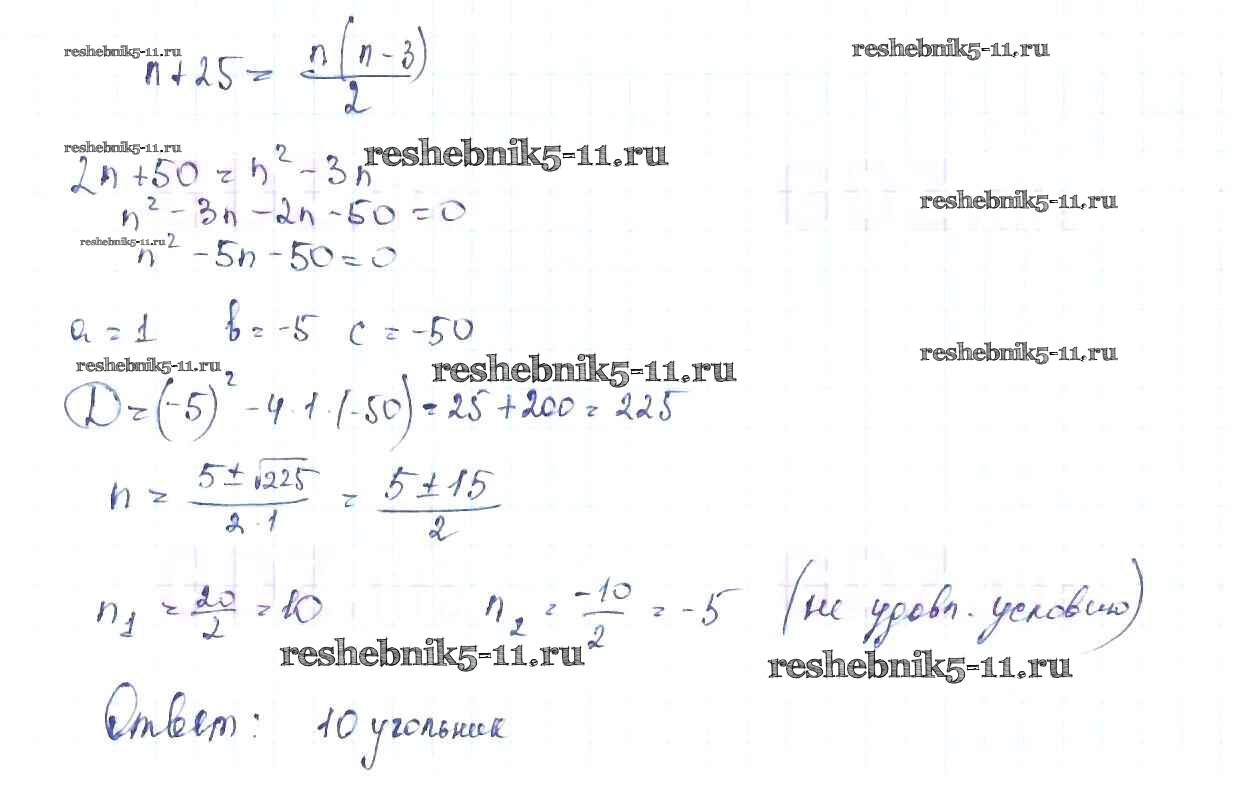 reshebnik5-11.ru reshebnik5-11.ru
n + 25 = n(n - 3)/2
reshebnik5-11.ru reshebnik5-11.ru
2n + 50 = n² - 3n
reshebnik5-11.ru
n² - 3n - 2n - 50 = 0
reshebnik5-11.ru
n² - 5n - 50 = 0
a = 1 b = -5 c = -50
reshebnik5-11.ru reshebnik5-11.ru reshebnik5-11.ru
D = (-5)² - 4·1·(-50) = 25 + 200 = 225
n = (5 ± √225)/(2·1) = (5 ± 15)/2
n₁ = 20/2 = 10 n₂ = -10/2 = -5 (не удовл. условию)
reshebnik5-11.ru reshebnik5-11.ru
Ответ: 10 угольник